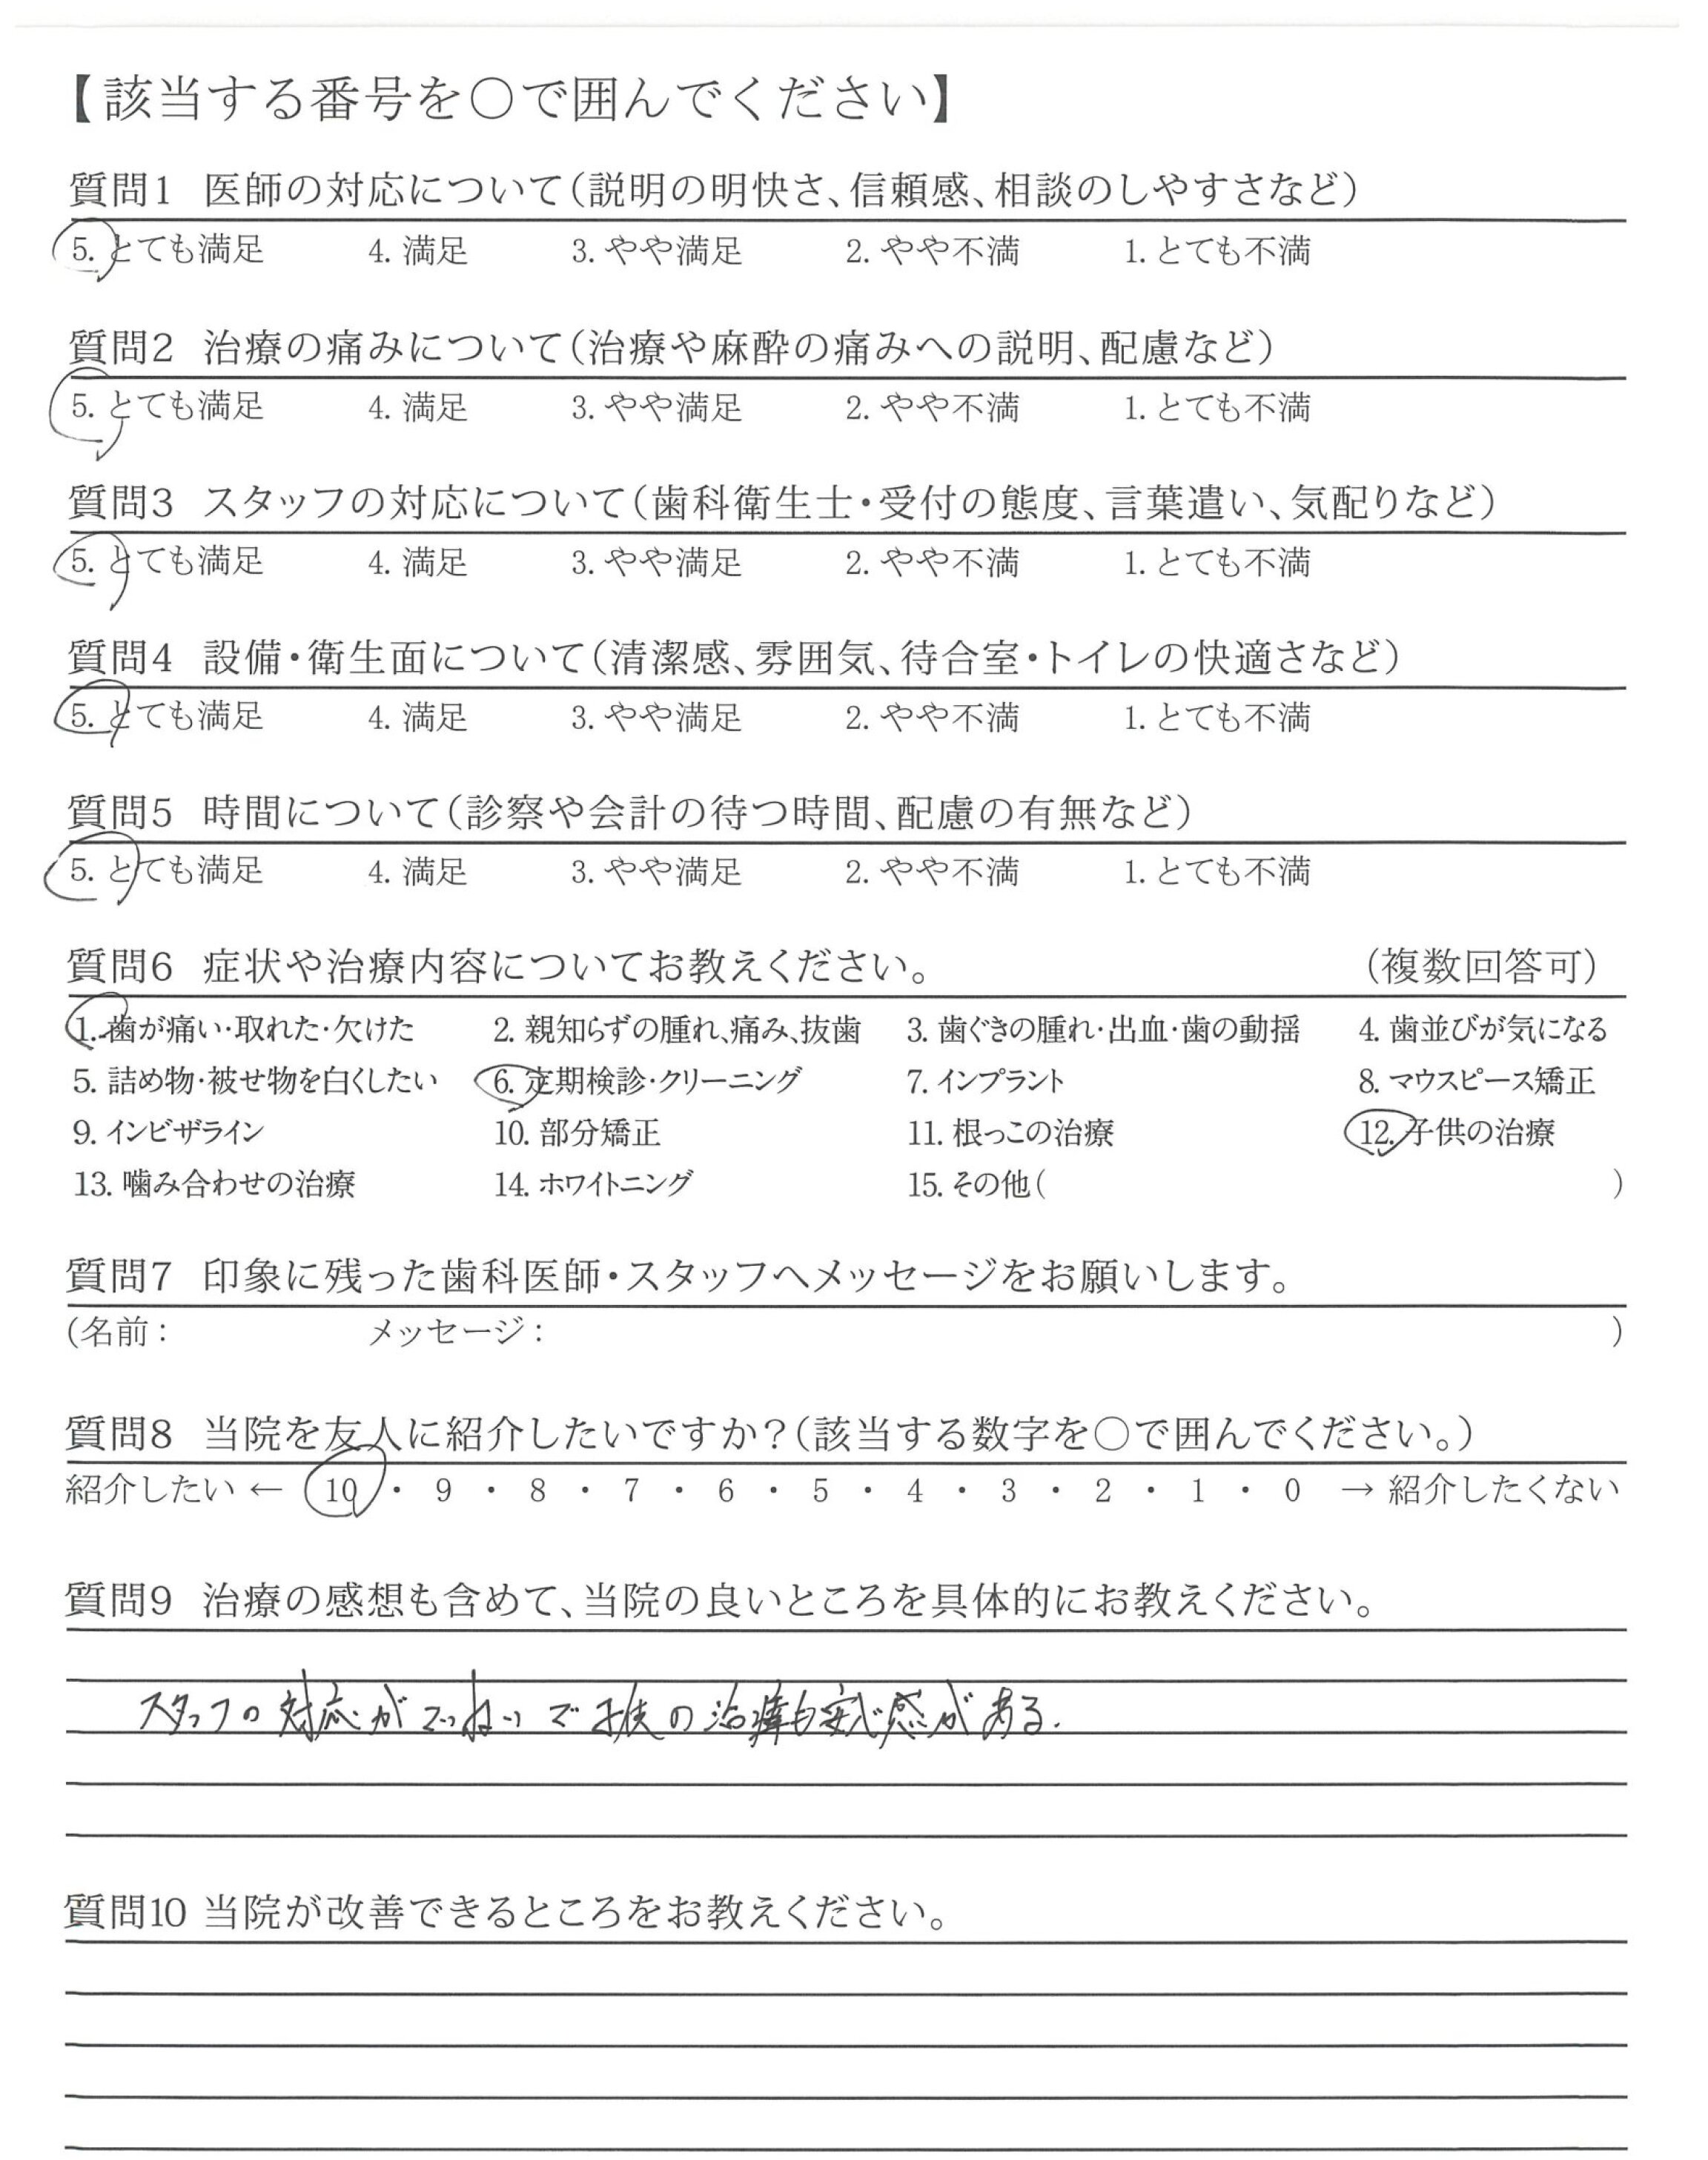 【該当する番号を○で囲んでください】
質問1 医師の対応について(説明の明快さ、信頼感、相談のしやすさなど)
5. とても満足 4. 満足 3. やや満足 2. やや不満 1. とても不満
質問2 治療の痛みについて(治療や麻酔の痛みへの説明、配慮など)
5. とても満足 4. 満足 3. やや満足 2. やや不満 1. とても不満
質問3 スタッフの対応について(歯科衛生士・受付の態度、言葉遣い、気配りなど)
5. とても満足 4. 満足 3. やや満足 2. やや不満 1. とても不満
質問4 設備・衛生面について(清潔感、雰囲気、待合室・トイレの快適さなど)
5. とても満足 4. 満足 3. やや満足 2. やや不満 1. とても不満
質問5 時間について(診察や会計の待つ時間、配慮の有無など)
5. とても満足 4. 満足 3. やや満足 2. やや不満 1. とても不満
質問6 症状や治療内容についてお教えください。 (複数回答可)
1. 歯が痛い・取れた・欠けた 2. 親知らずの腫れ、痛み、抜歯 3. 歯ぐきの腫れ・出血・歯の動揺 4. 歯並びが気になる
5. 詰め物・被せ物を白くしたい 6. 定期検診・クリーニング 7. インプラント 8. マウスピース矯正
9. インビザライン 10. 部分矯正 11. 根っこの治療 12. 子供の治療
13. 噛み合わせの治療 14. ホワイトニング 15. その他( )
質問7 印象に残った歯科医師・スタッフへメッセージをお願いします。
(名前: メッセージ: )
質問8 当院を友人に紹介したいですか?(該当する数字を○で囲んでください。)
紹介したい ← 10 ・ 9 ・ 8 ・ 7 ・ 6 ・ 5 ・ 4 ・ 3 ・ 2 ・ 1 ・ 0 → 紹介したくない
質問9 治療の感想も含めて、当院の良いところを具体的にお教えください。
スタッフの対応がていねいで子供の治療も安心感がある.
質問10 当院が改善できるところをお教えください。